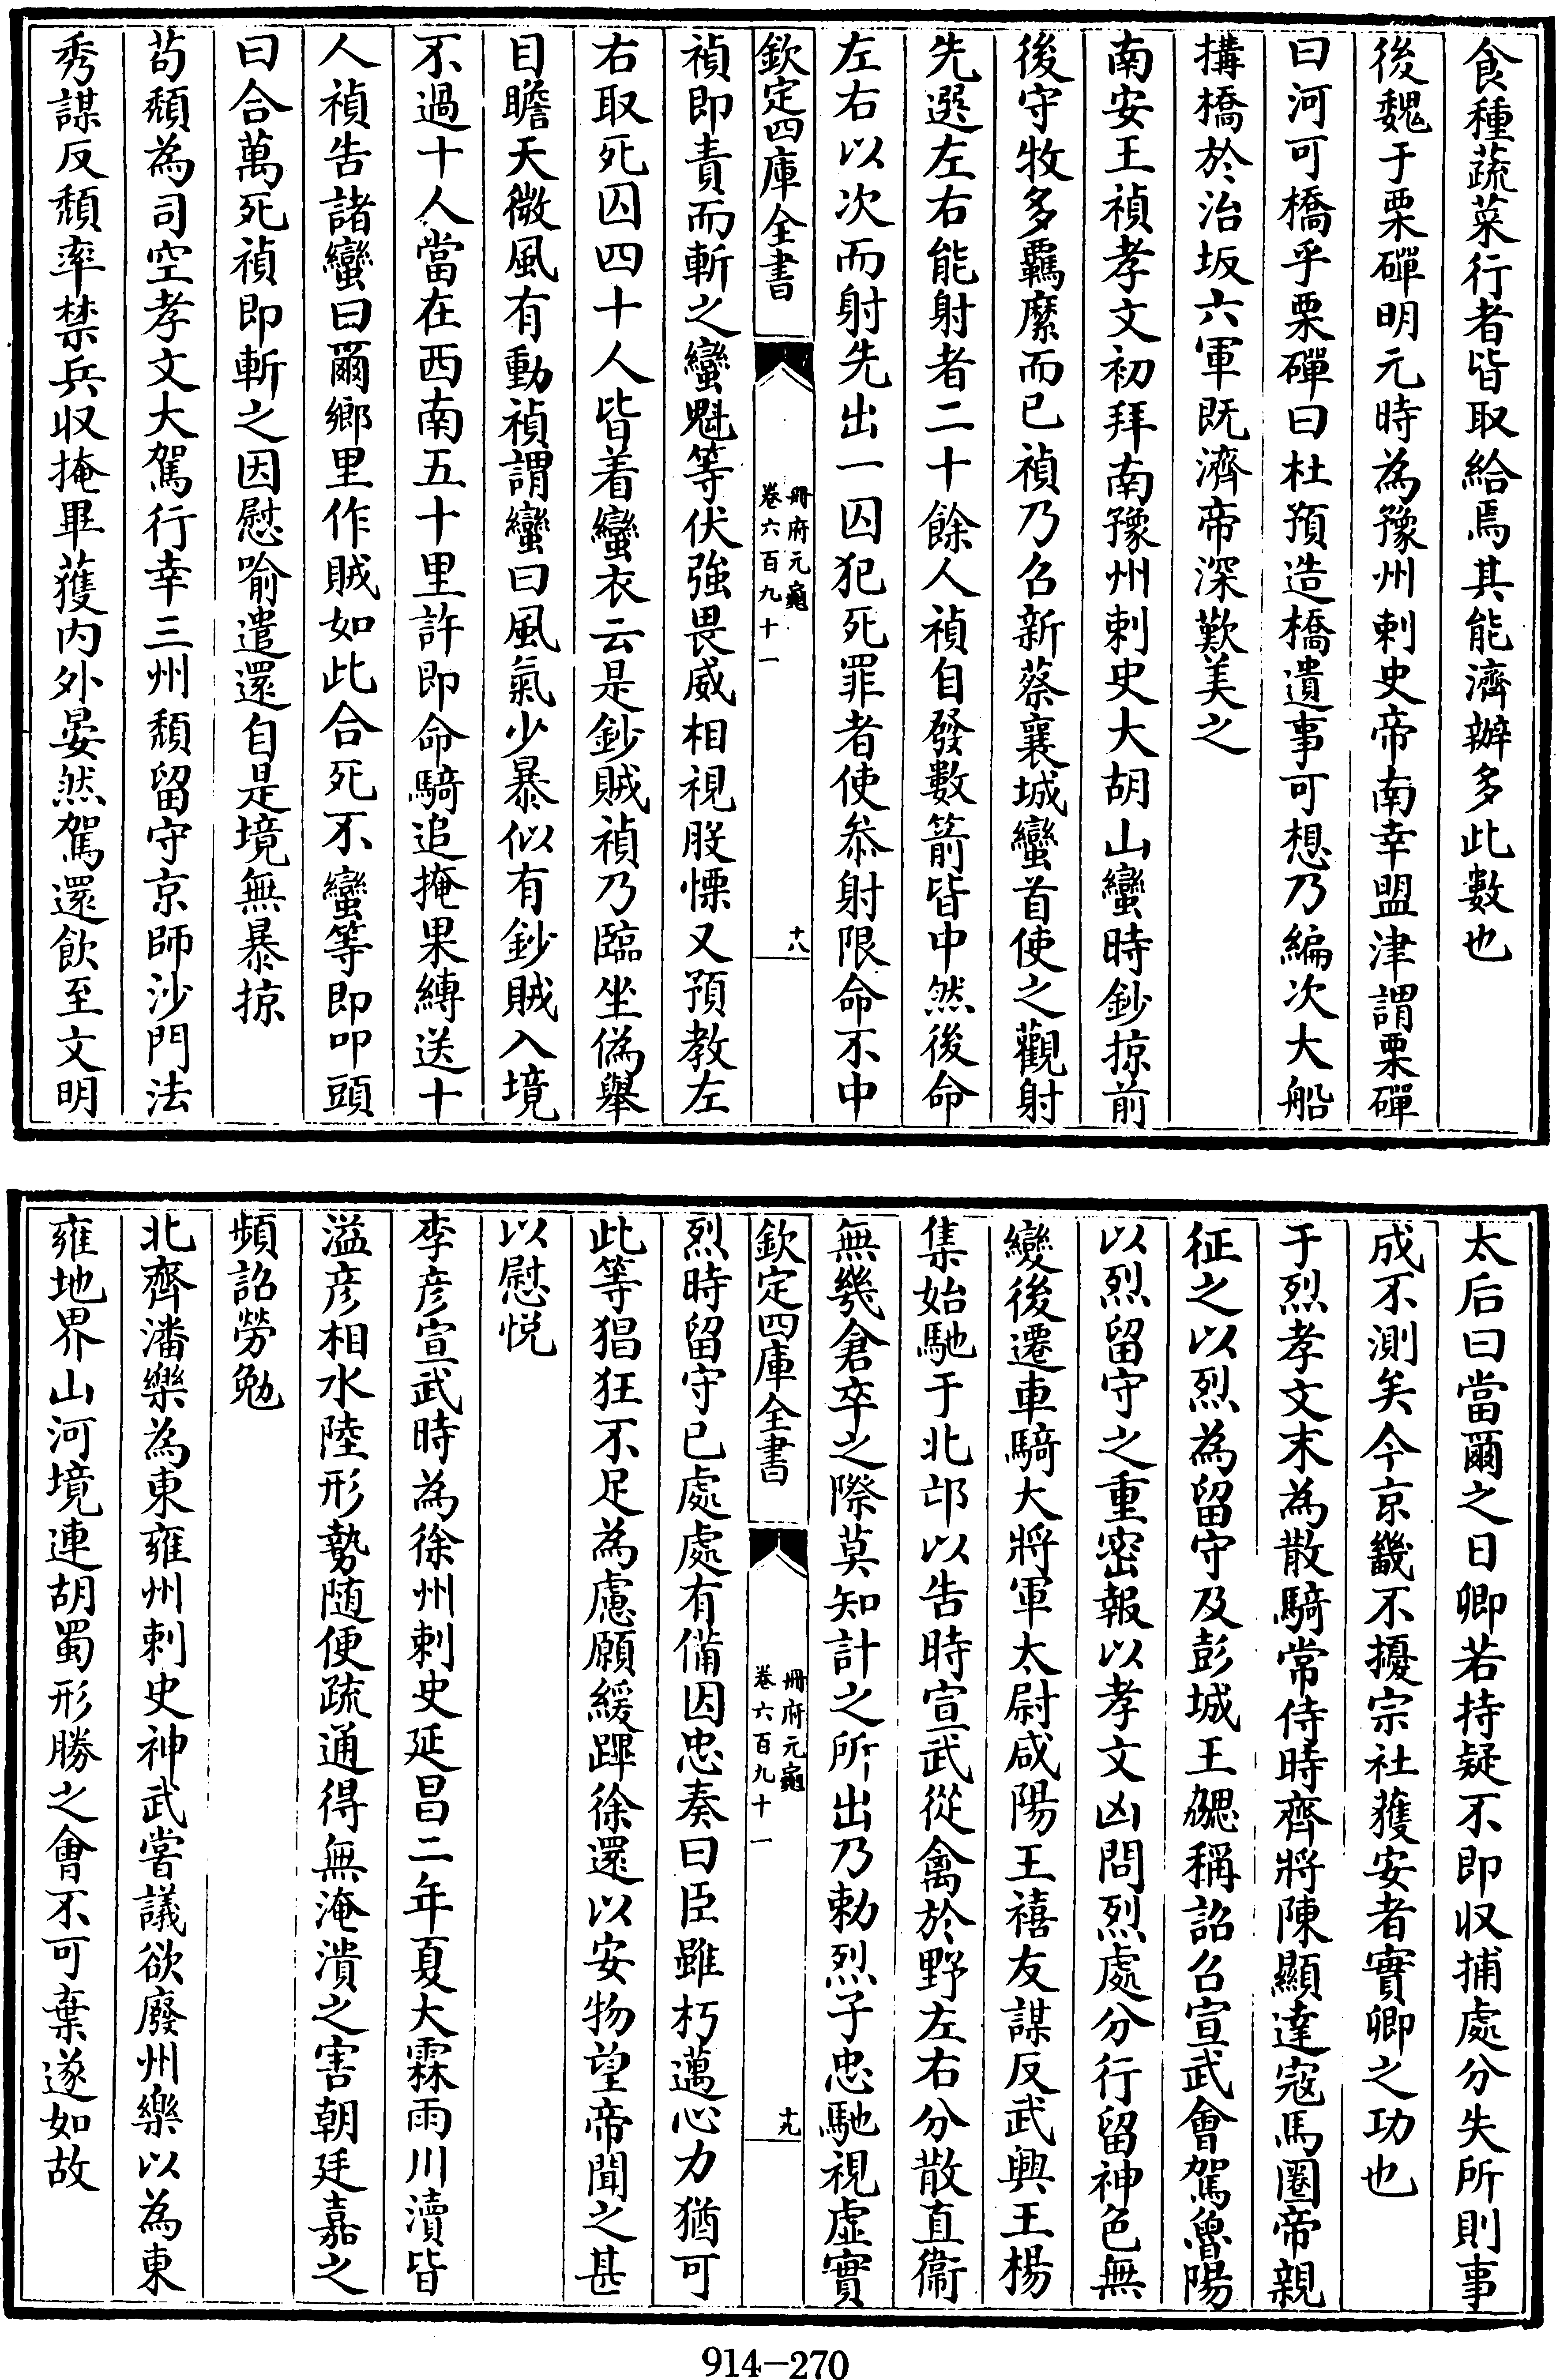 食種蔬菜行者皆取給焉其能濟辦多此數也
後魏于栗磾明元時為豫州刺史帝南幸盟津謂栗磾
曰河可橋乎栗磾曰杜預造橋遺事可想乃編次大船
搆橋於冶坂六軍既濟帝深歎美之
南安王禎孝文初拜南豫州刺史大胡山蠻時鈔掠前
後守牧多羈縻而已禎乃召新蔡襄城蠻首使之觀射
先選左右能射者二十餘人禎自發數箭皆中然後命
左右以次而射先出一囚犯死罪者使叅射限命不中
欽定四庫全書
冊府元龜
卷六百九十一
十八
禎即責而斬之蠻魁等伏強畏威相視股慄又預教左
右取死囚四十人皆着蠻衣云是鈔賊禎乃臨坐偽舉
目瞻天微風有動禎謂蠻曰風氣少暴似有鈔賊入境
不過十人當在西南五十里許即命騎追掩果縛送十
人禎告諸蠻曰爾鄉里作賊如此合死不蠻等即叩頭
曰合萬死禎即斬之因慰喻遣還自是境無暴掠
苟頹為司空孝文大駕行幸三州頹留守京師沙門法
秀謀反頹率禁兵收掩畢獲內外晏然駕還飲至文明
太后曰當爾之日卿若持疑不即收捕處分失所則事
成不測矣今京畿不擾宗社獲安者實卿之功也
于烈孝文末為散騎常侍時齊將陳顯達寇馬圈帝親
征之以烈為留守及彭城王勰稱詔召宣武會駕魯陽
以烈留守之重密報以孝文凶問烈處分行留神色無
變後遷車騎大將軍太尉咸陽王禧友謀反武興王楊
集始馳于北邙以告時宣武從禽於野左右分散直衞
無幾倉卒之際莫知計之所出乃勅烈子忠馳視虛實
欽定四庫全書
冊府元龜
卷六百九十一
十九
烈時留守已處處有備因忠奏曰臣雖朽邁心力猶可
此等猖狂不足為慮願緩蹕徐還以安物望帝聞之甚
以慰悅
李彥宣武時為徐州刺史延昌二年夏大霖雨川瀆皆
溢彥相水陸形勢隨便疏通得無淹潰之害朝廷嘉之
頻詔勞勉
北齊潘樂為東雍州刺史神武嘗議欲廢州樂以為東
雍地界山河境連胡蜀形勝之會不可棄遂如故
914-270